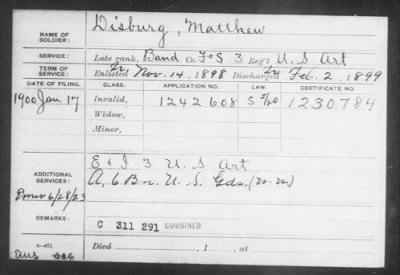 NAME OF SOLDIER: Disburg, Matthew
SERVICE: Late rank, Band Co. F&S 3 Reg't U.S. Art
TERM OF SERVICE: Enlisted Nov. 14. 1898 Discharged Feb. 2. 1899
DATE OF FILING. CLASS. APPLICATION NO. LAW. CERTIFICATE NO.
1900 Jan 17 Invalid, 1242608 1230784
Widow,
Minor,
ADDITIONAL SERVICES: E & I 3 U.S. Art
A, 6 Bn. U.S. Gds. (W.W.)
6/28/23
REMARKS:
C 311 291 COMBINED
Died , 1 , at